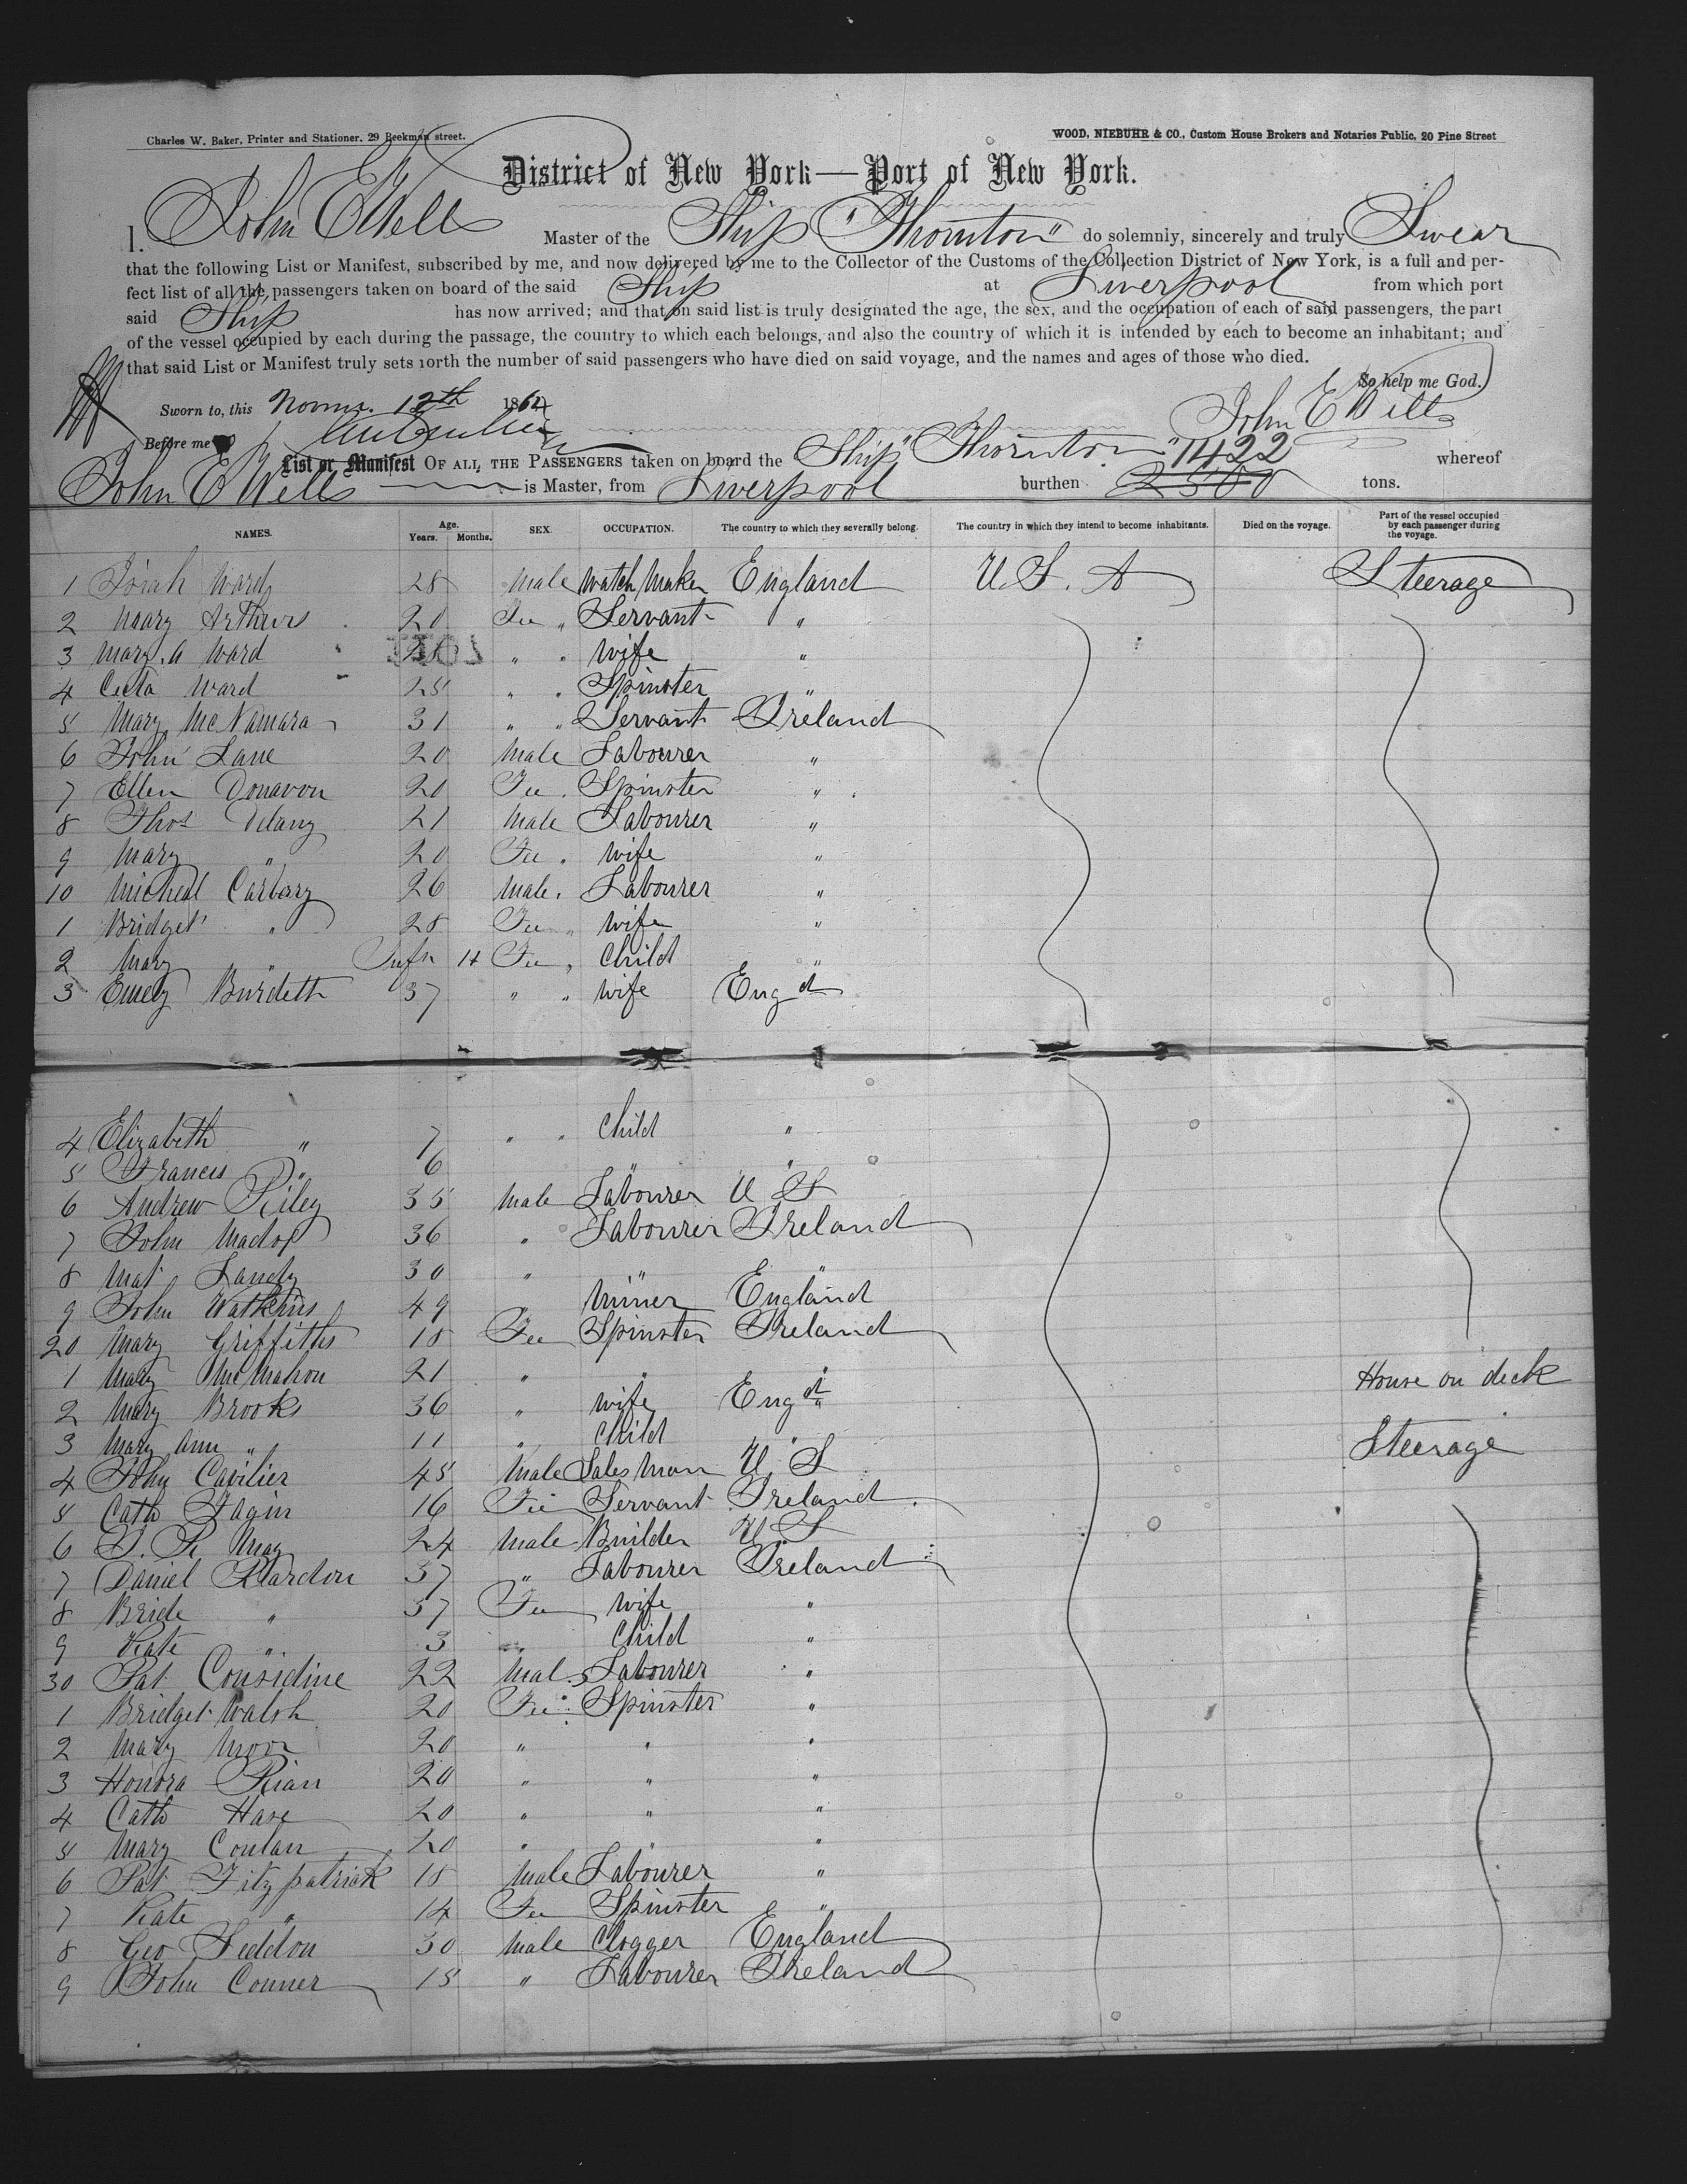 Charles W. Baker, Printer and Stationer, 29 Beekman street. WOOD, NIEBUHR & CO., Custom House Brokers and Notaries Public, 20 Pine Street
District of New York—Port of New York.
I, John E Wells Master of the Ship "Thornton" do solemnly, sincerely and truly Swear
that the following List or Manifest, subscribed by me, and now delivered by me to the Collector of the Customs of the Collection District of New York, is a full and per-
fect list of all the passengers taken on board of the said Ship at Liverpool from which port
said Ship has now arrived; and that on said list is truly designated the age, the sex, and the occupation of each of said passengers, the part
of the vessel occupied by each during the passage, the country to which each belongs, and also the country of which it is intended by each to become an inhabitant; and
that said List or Manifest truly sets forth the number of said passengers who have died on said voyage, and the names and ages of those who died.
So help me God.
Sworn to, this 12th 186 John E Wells
Before me
List or Manifest OF ALL THE PASSENGERS taken on board the Ship "Thornton" 1422 whereof
John E Wells is Master, from Liverpool burthen 2500 tons.
NAMES. Age. Years. Months. SEX. OCCUPATION. The country to which they severally belong. The country in which they intend to become inhabitants. Died on the voyage. Part of the vessel occupied by each passenger during the voyage.
1 Ward 28 Male Watch Maker England U. S. A Steerage
2 Mary Arthurs 20 Fe " Servant "
3 Mary A Ward " " Wife "
4 Ward 25 " " Spinster "
5 Mary McNamara 31 " " Servant Ireland
6 John Lane 20 Male Labourer "
7 Ellen Donavon 20 Fe . Spinster "
8 Thos Delany 21 Male Labourer "
9 Mary " 20 Fe . Wife "
10 Micheal Carbery 26 Male . Labourer "
1 Bridget " 28 Fe " Wife "
2 Mary " Infn Fe " Child "
3 Emely Burdett 37 " " Wife Engd
4 Elizabeth " 7 " " Child "
5 Frances " 6 " "
6 Andrew Riley 35 Male Labourer U S
7 John 36 " Labourer Ireland
8 Mat Landy 30 " " "
9 John Watkins 49 " Miner England
20 Mary Griffiths 18 Fe Spinster Ireland
1 Mary McMahon 21 " " " House on deck
2 Mary Brooks 36 " Wife Engd
3 Mary Ann " 11 " Child " Steerage
4 John Cavilier 45 Male Sales Man U S
5 Cath Fagin 16 Fe Servant Ireland
6 May 24 Male Builder U S
7 Daniel Reardon 37 " Labourer Ireland
8 Bride " 37 Fe Wife "
9 Kate " 3 " Child "
30 Pat Considine 22 Mal Labourer "
1 Bridget Walsh 20 Fe Spinster "
2 Mary Moor 20 " " "
3 Honora Rian 20 " " "
4 Cath Hare 20 " " "
5 Mary Conlan 20 " " "
6 Pat Fitzpatrick 18 Male Labourer "
7 Kate " 14 Fe Spinster "
8 Geo Seddon 30 Male Clogger England
9 John Conner 18 " Labourer Ireland